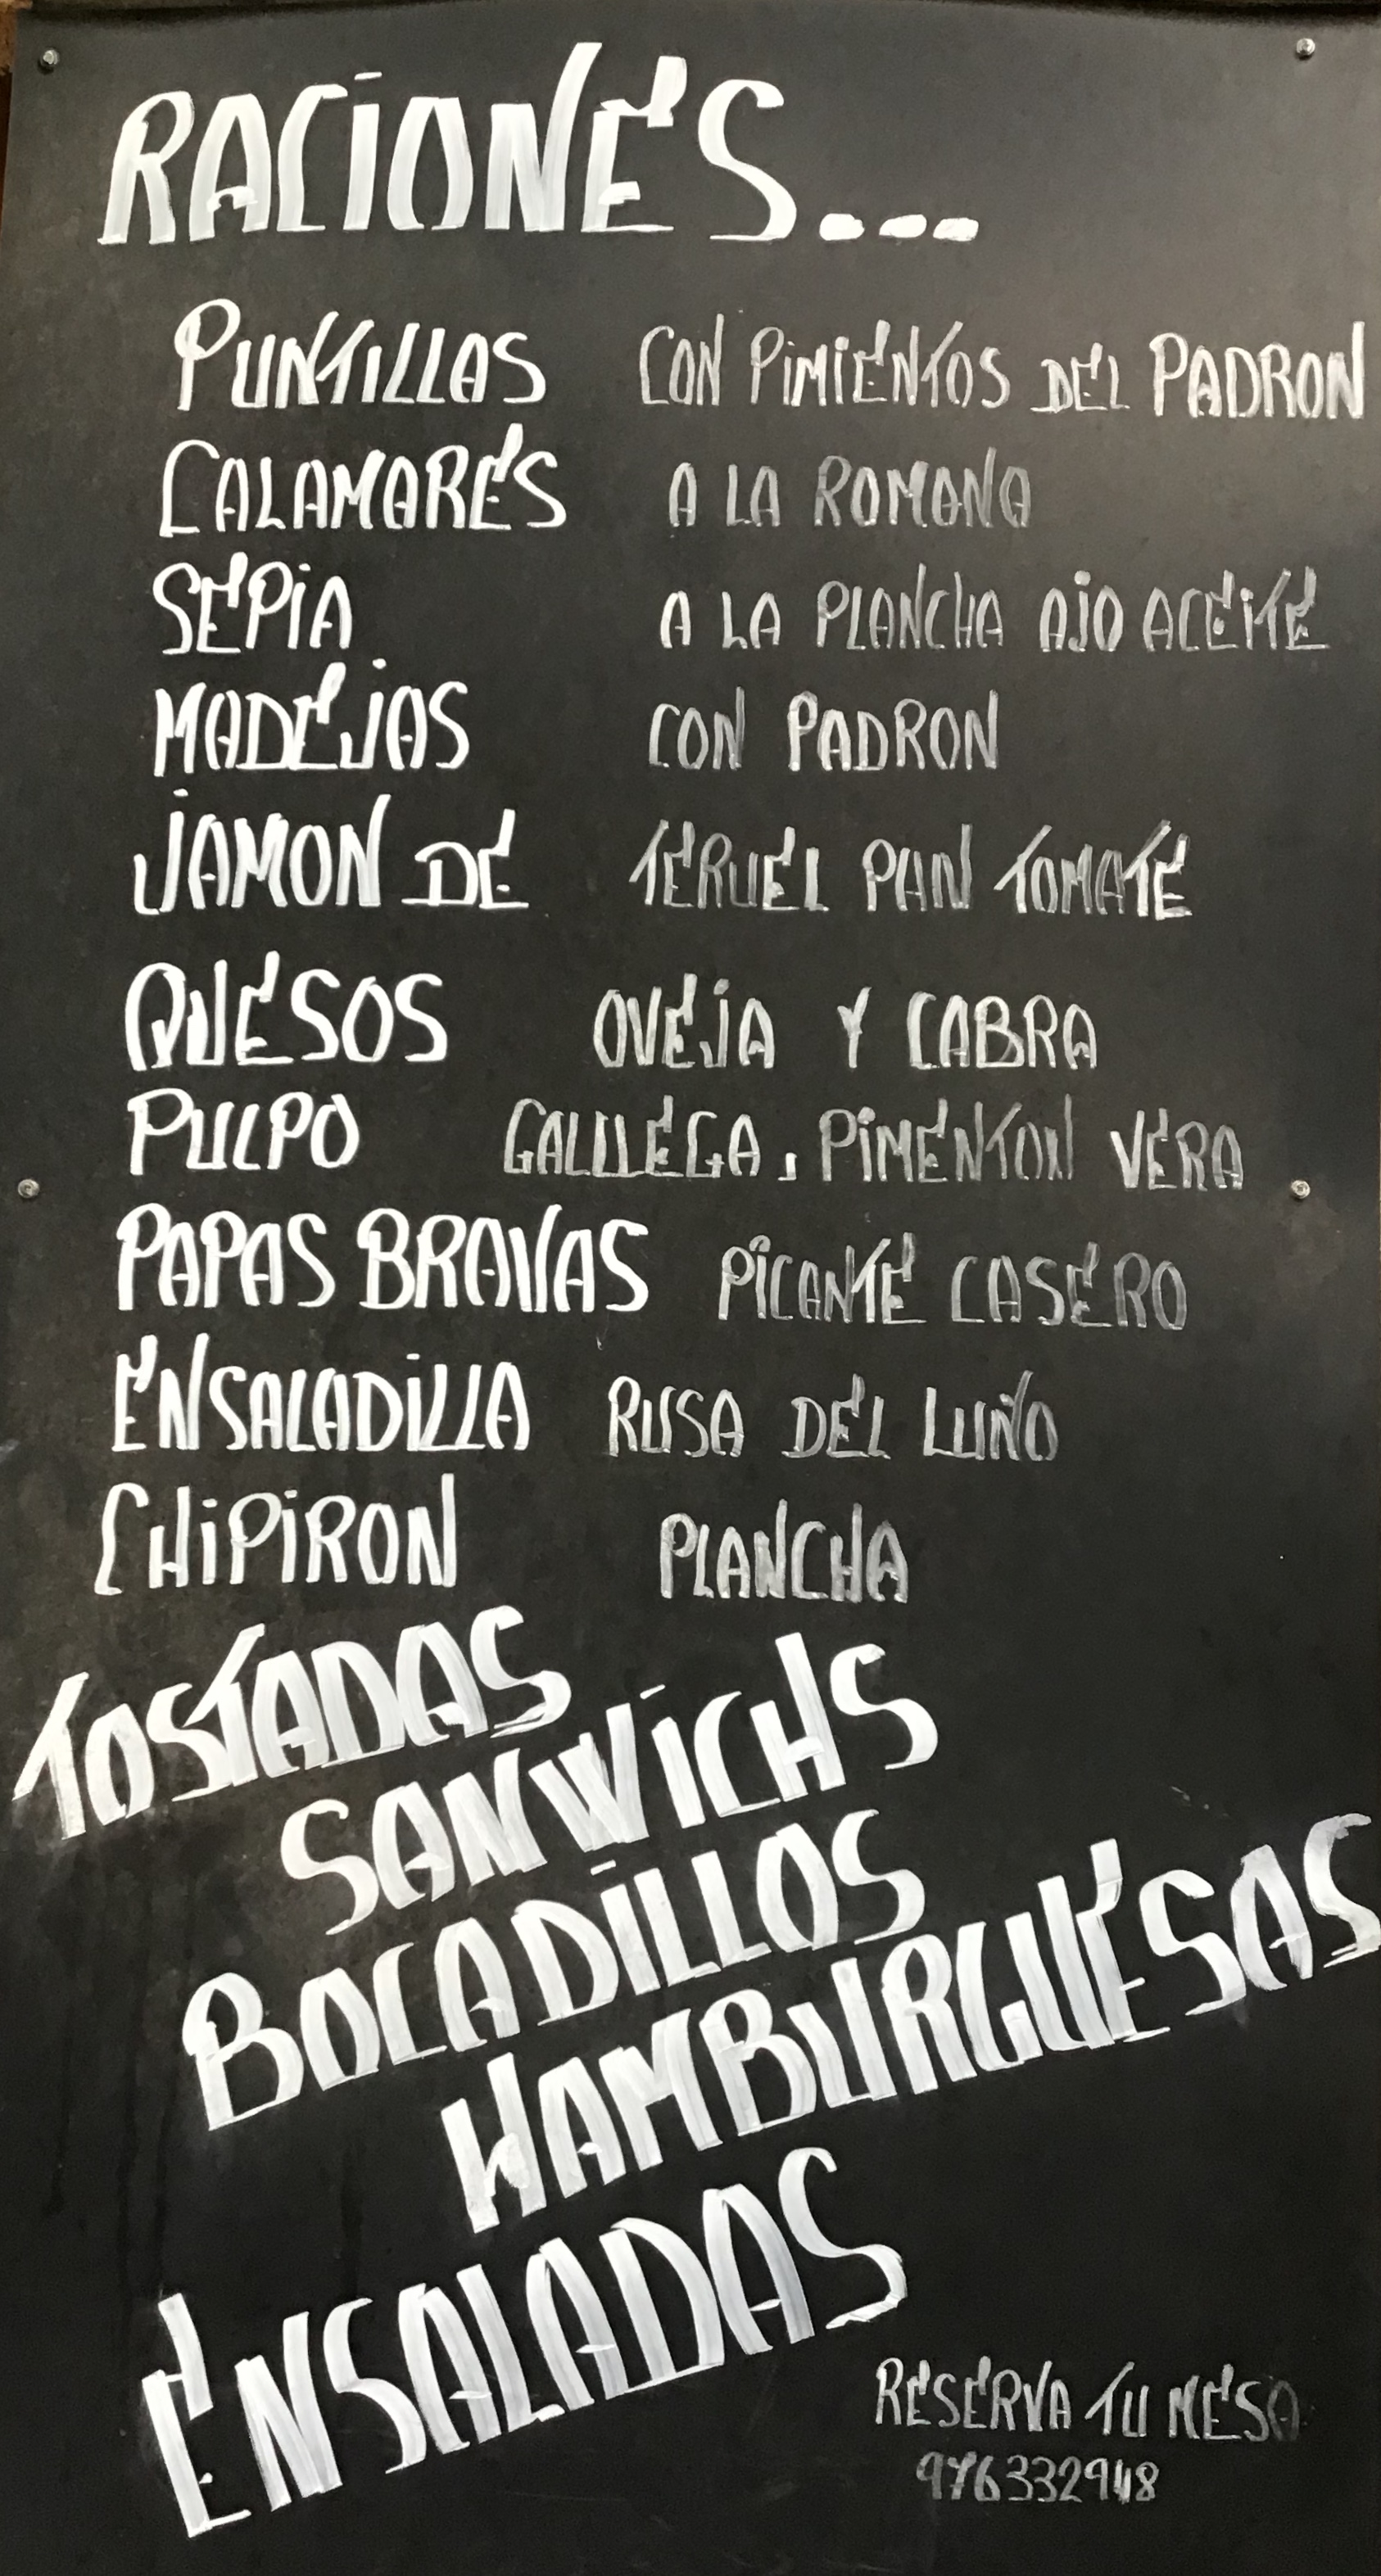 RACIONES...
PUNTILLAS CON PIMIENTOS DEL PADRON
CALAMARES A LA ROMANA
SEPIA A LA PLANCHA AJO ACEITE
MADEJAS CON PADRON
JAMON DE TERUEL PAN TOMATE
QUESOS OVEJA Y CABRA
PULPO GALLLEGA, PIMENTON VERA
PAPAS BRAVAS PICANTE CASERO
ENSALADILLA RUSA DEL LUÑO
CHIPIRON PLANCHA
TOSTADAS
SANWICHS
BOCADILLOS
HAMBURGUESAS
ENSALADAS
RESERVA TU MESA
976332948